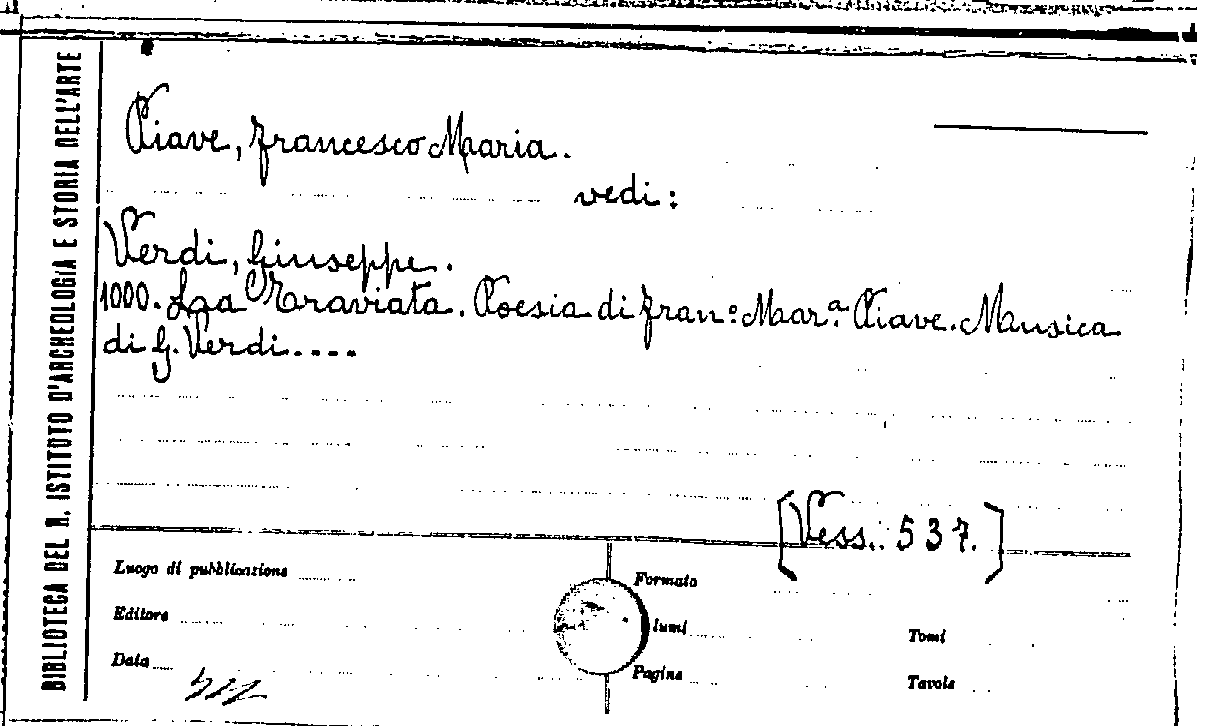 BIBLIOTECA DEL R. ISTITUTO D'ARCHEOLOGIA E STORIA DELL'ARTE
Piave, Francesco Maria.
vedi:
Verdi, Giuseppe.
1000. Laa Traviata. Poesia di Fran.º Mar.ª Piave. Musica
di G. Verdi....
[Vess.: 537.]
Luogo di pubblicazione
Formato
Editore
lumi
Tomi
Data
Pagine
Tavole